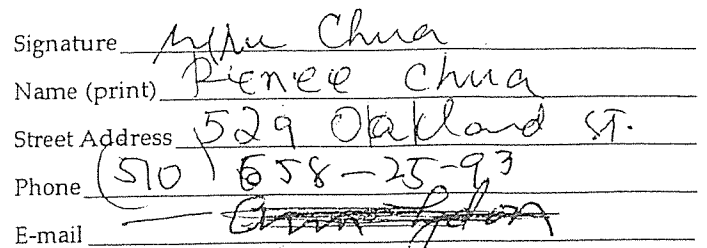 Signature Chua
Name (print) Renee Chua
Street Address 529 Oakland ST.
Phone (510) 658-25-93
E-mail